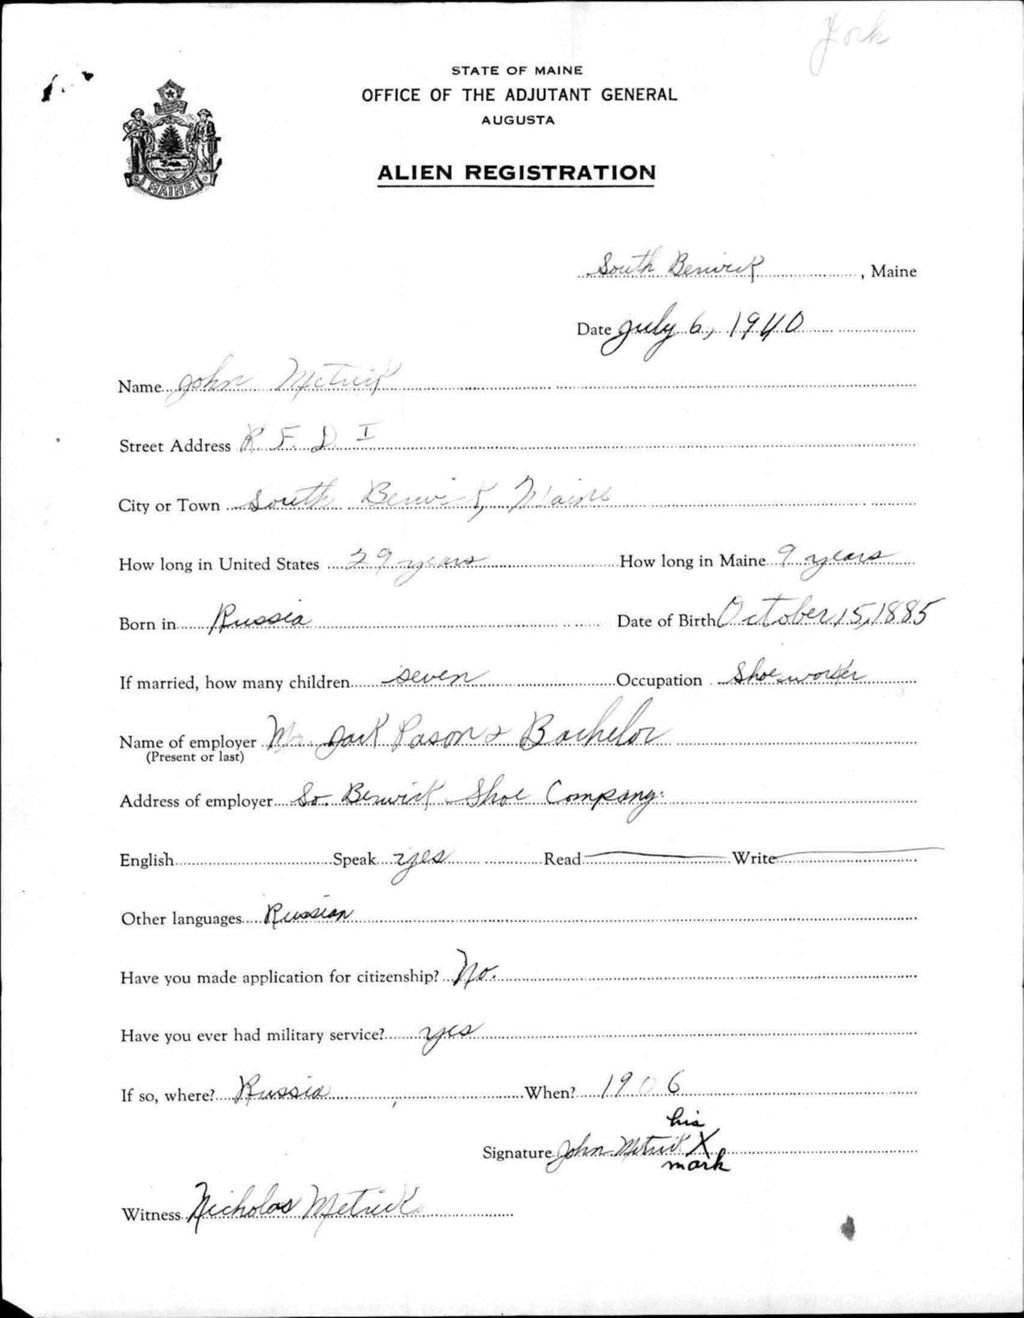 York
STATE OF MAINE
OFFICE OF THE ADJUTANT GENERAL
AUGUSTA
ALIEN REGISTRATION
MAINE
South Berwick, Maine
Date July 6, 1940
Name John Metrick
Street Address R F D I
City or Town South Berwick, Maine
How long in United States 29 years How long in Maine 9 years
Born in Russia Date of Birth October 15, 1885
If married, how many children seven Occupation Shoe worker
Name of employer Mr. Jack Bachelor
(Present or last)
Address of employer So. Berwick Shoe Company.
English Speak yes Read Write
Other languages Russian
Have you made application for citizenship? No.
Have you ever had military service? yes
If so, where? Russia When? 1906
his
Signature John Metrick X
mark
Witness Nicholas Metrick